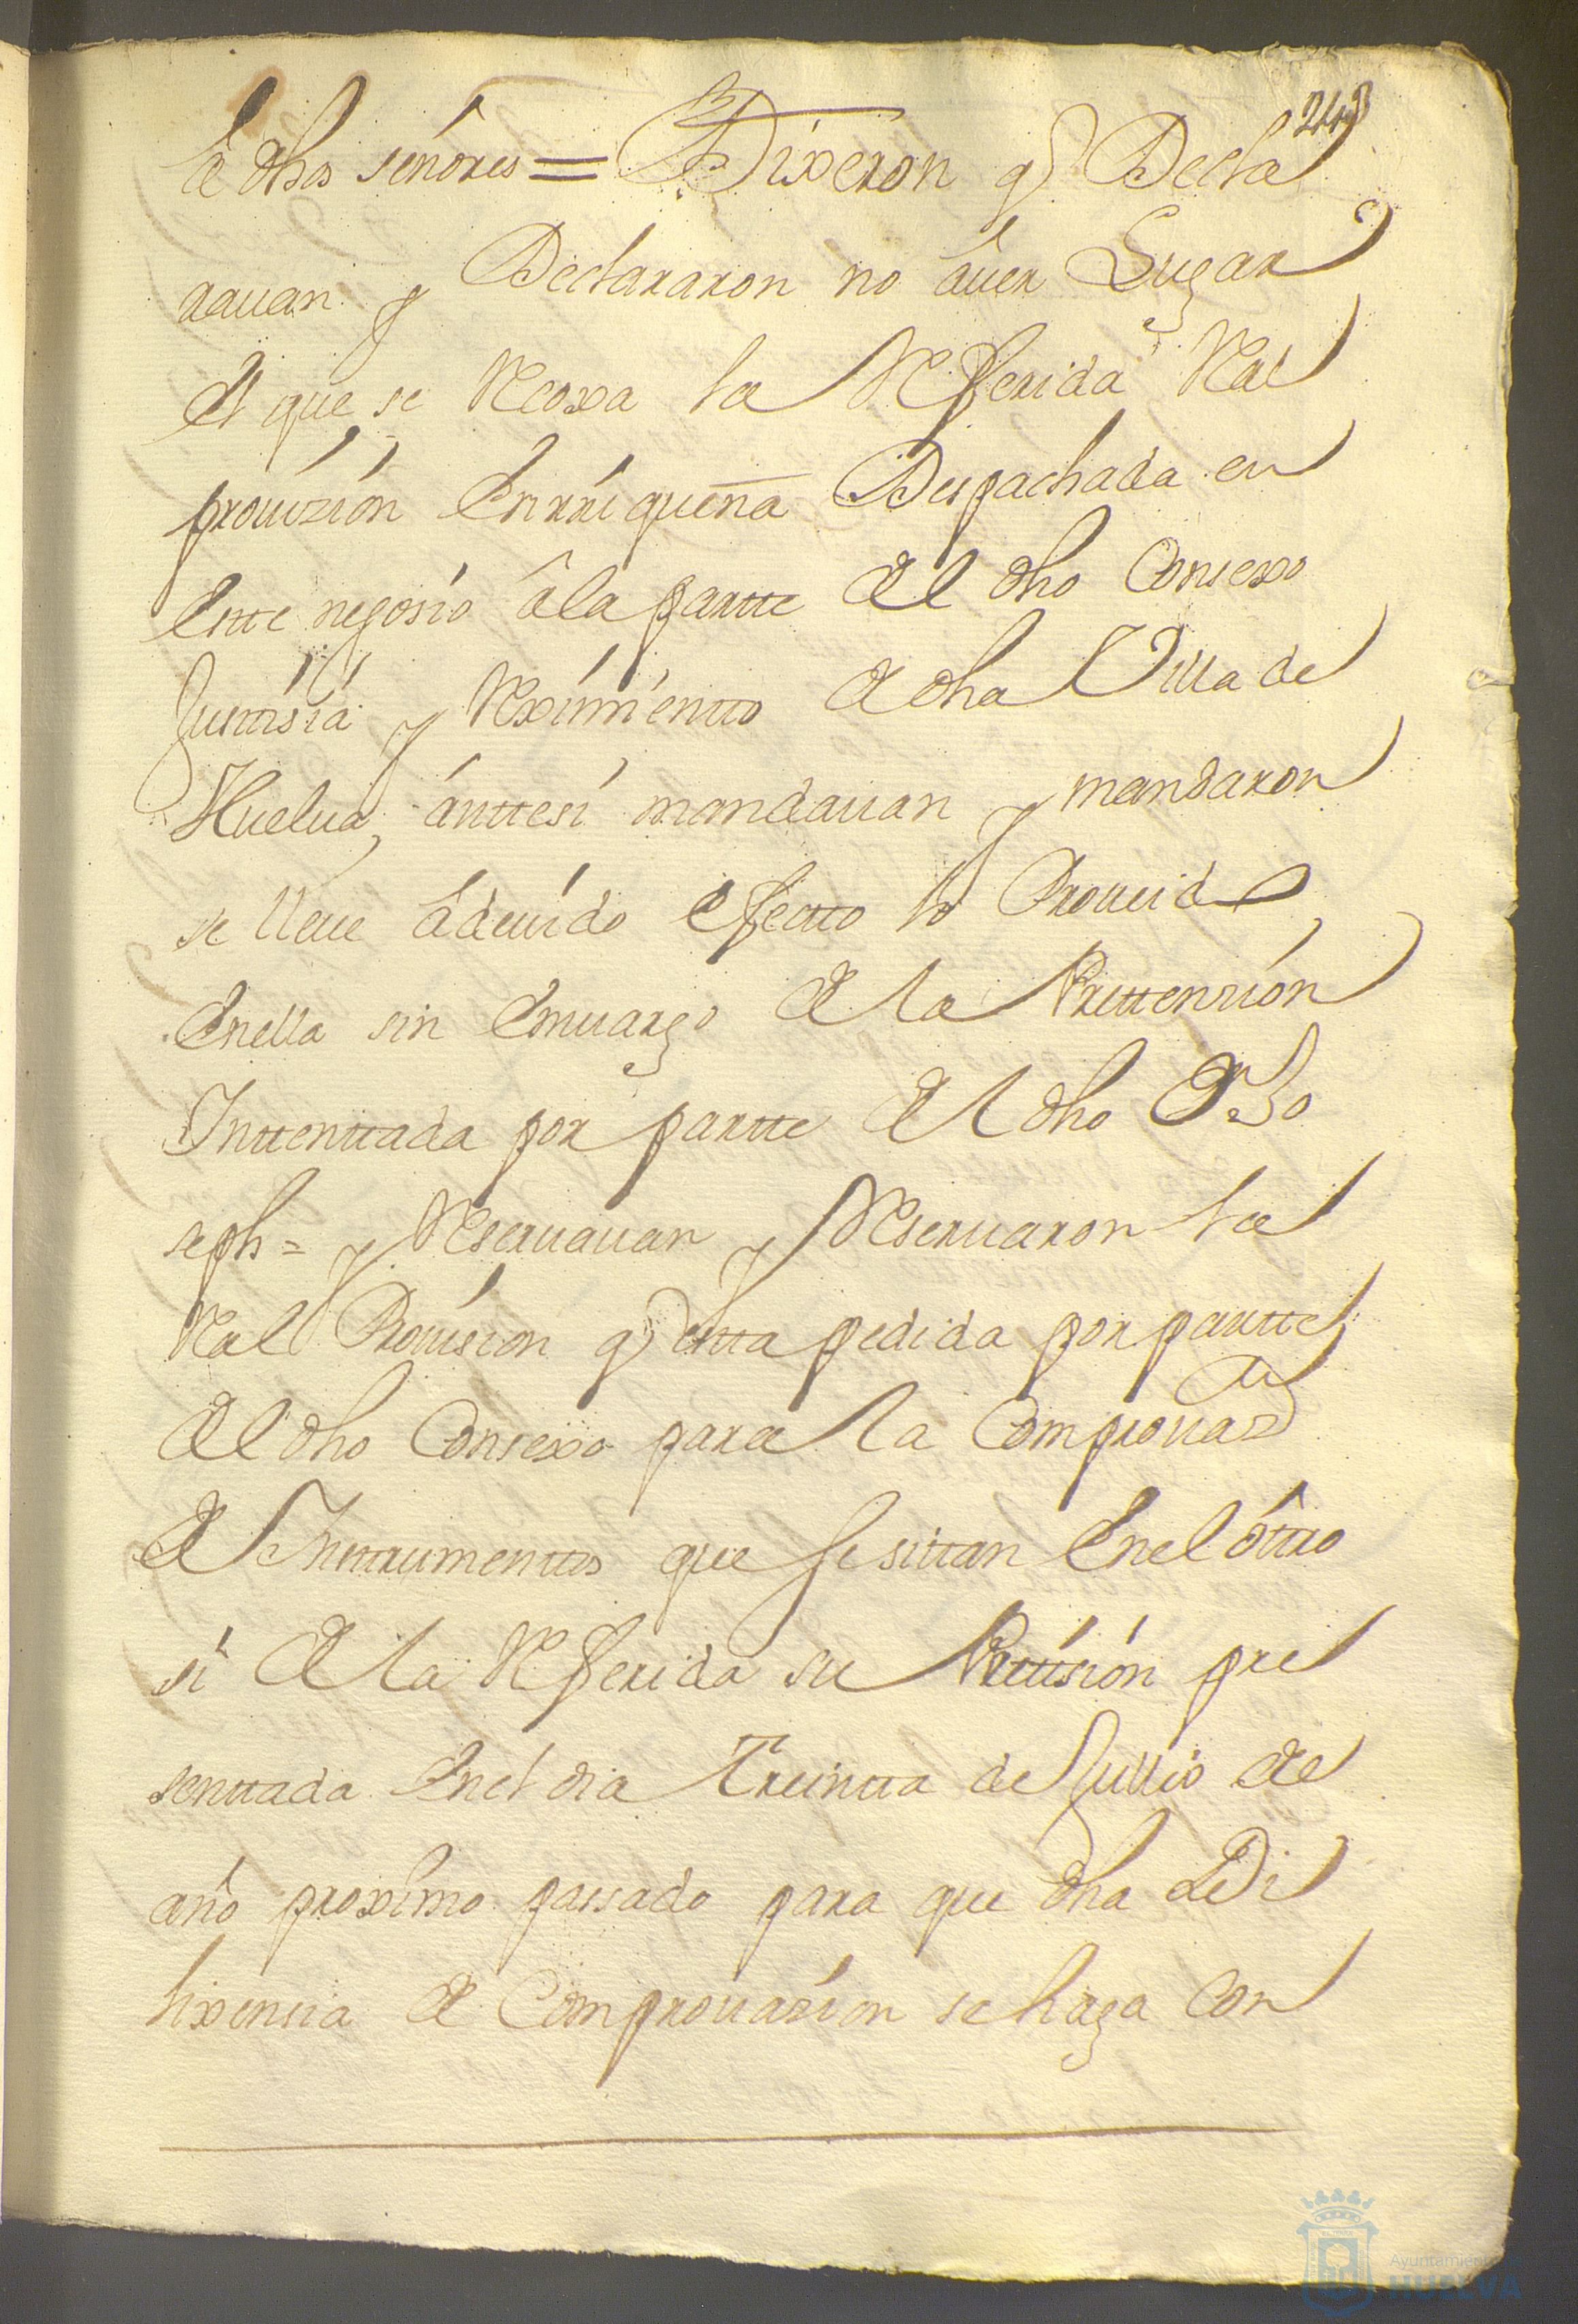 243
de dhos señores = Dixeron q Decla
rauan y Declararon no auer Lugar
el que se Recoxa la Referida Rl
prouizion Enrriqueña Despachada en
este negosio âla partte del dho Consexo
Justisia y Reximientto de dha Villa de
Huelua, ânttesi mandauan y mandaron
se lleue âdeuido efectto lo Proueido
Enella sin Enuargo de la Prettension
Inttenttada por partte del dho Dn Jo
seph = y Reseruauan y Reseruaron la
Real Prouision q estta pedida por partte
del dho Consexo para la Comprouaz
de Ynsttrumenttos que se sittan Enel ôttro
si de la Referida su Pettision pre
senttada Enel dia Treintta de Jullio de
año proximo passado para que dha Di
lixensia de Comprouasion se haga Con
Ayuntamiento de
HUELVA